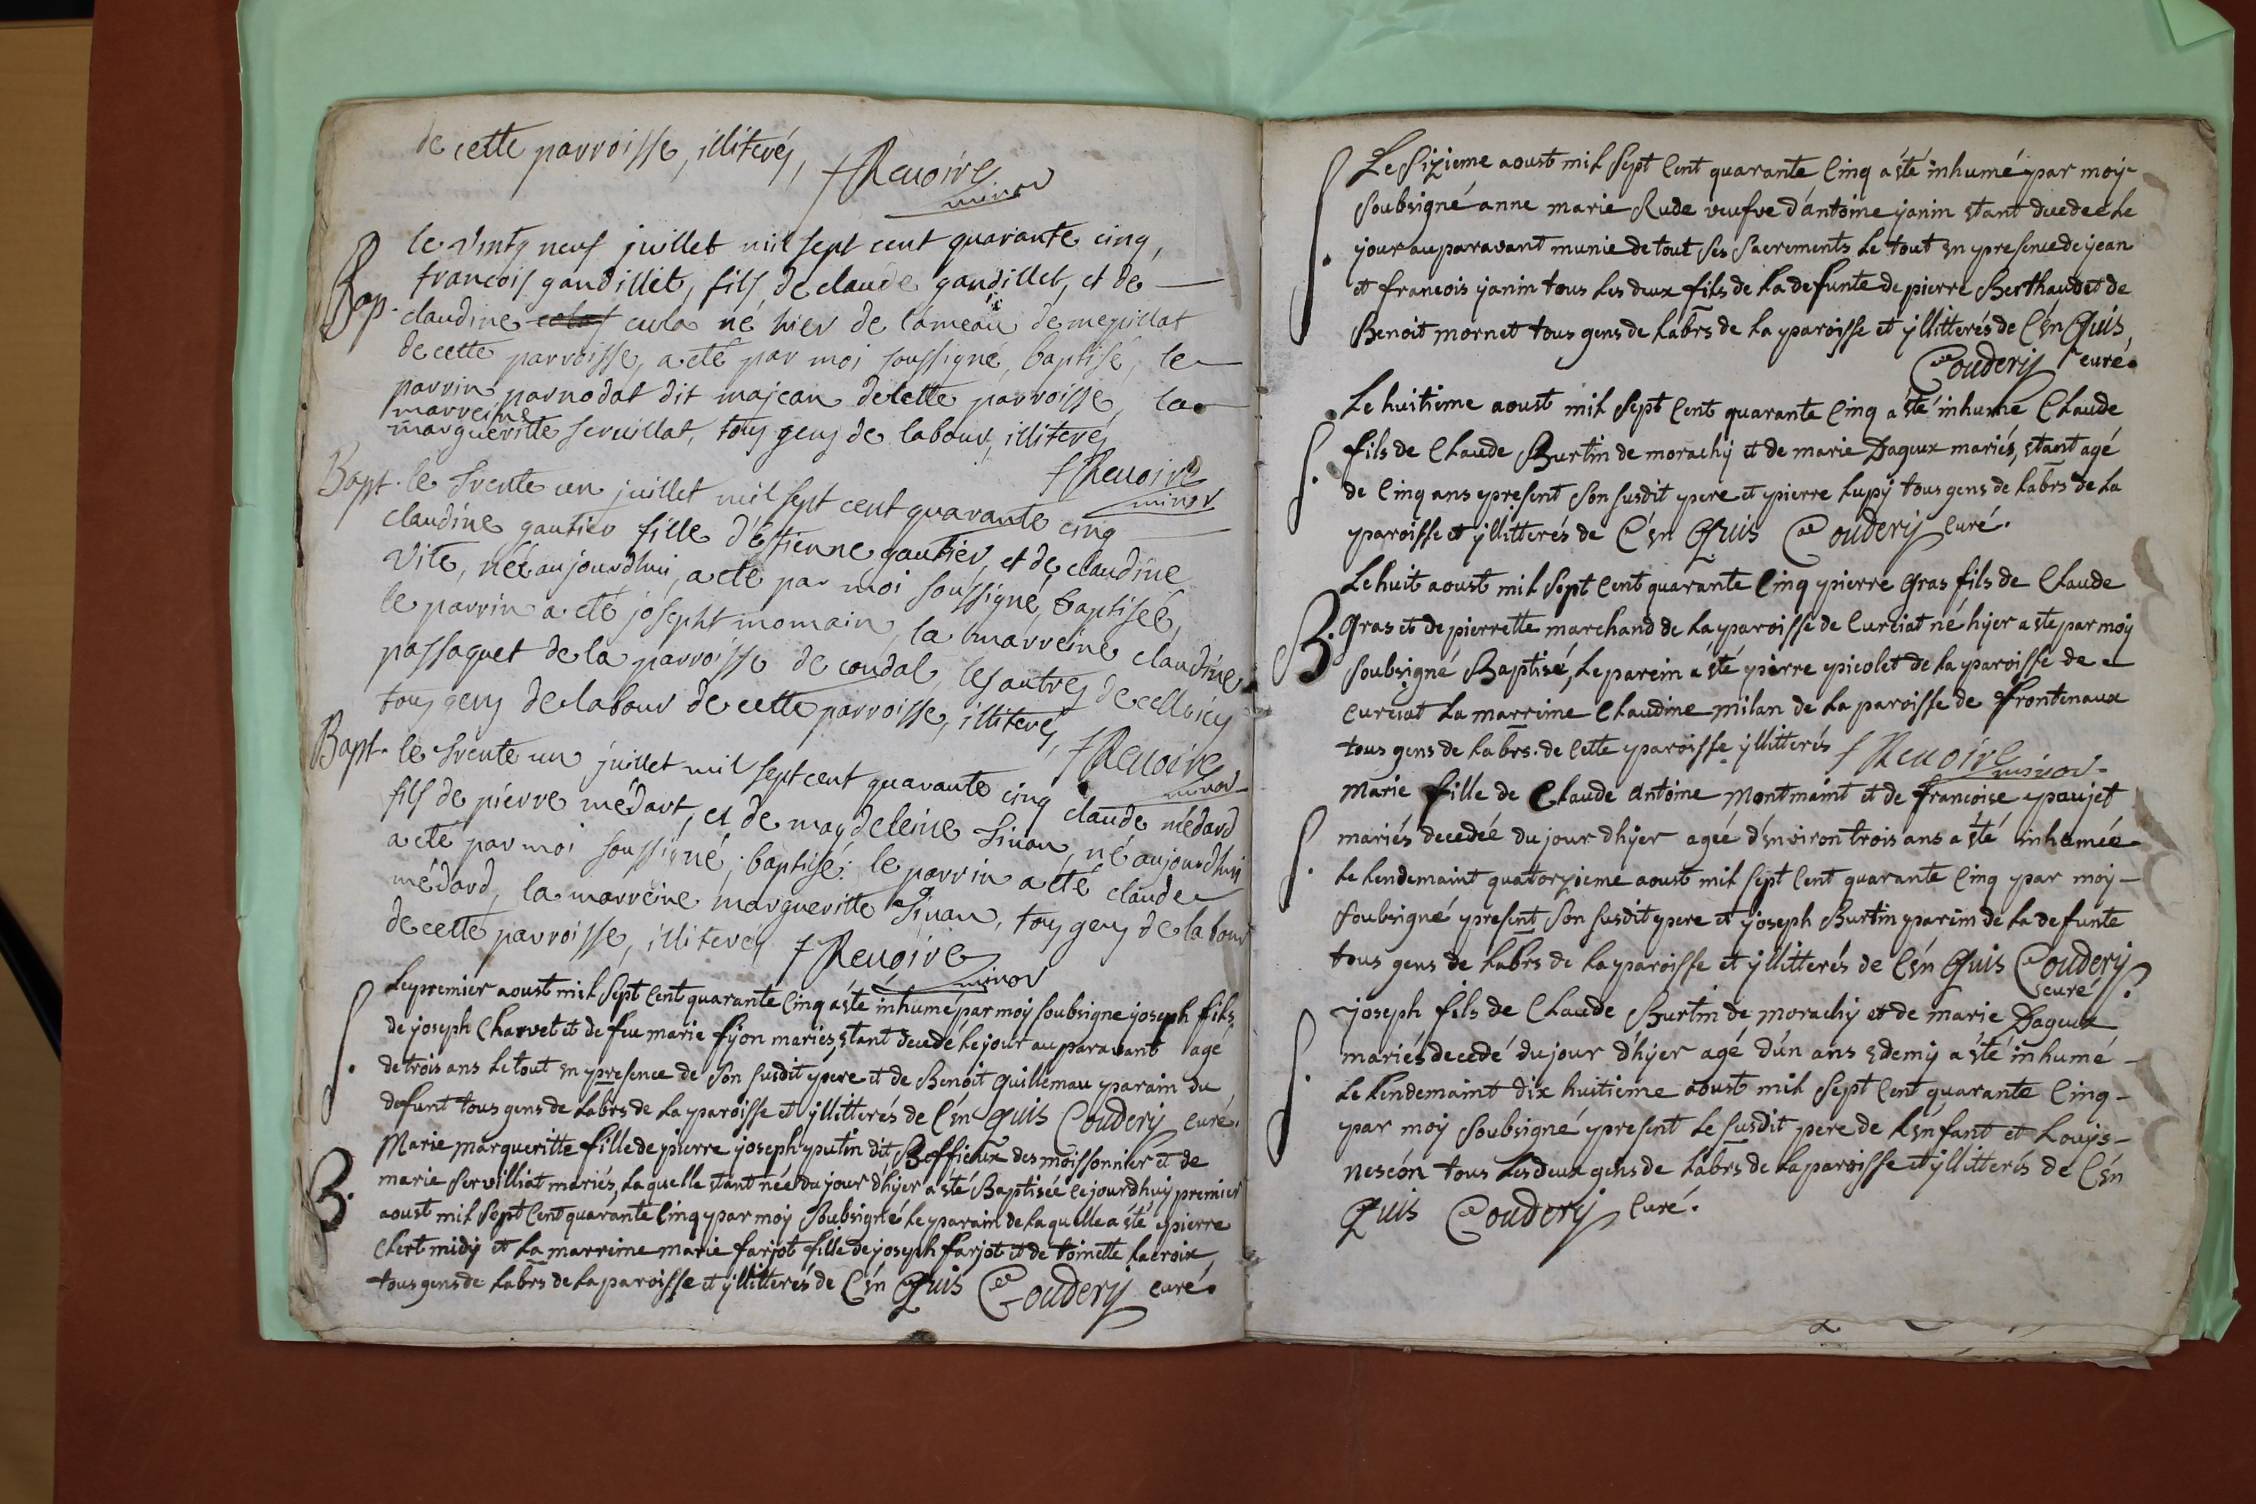 de cette parroisse, illiterés, f Renoire
minor
Bap. le vintg neuf juillet mil sept cent quarante cinq,
francois gaudillet, fils, de claude gaudillet, et de
claudine cula né hier de lameau de mepillat
de cette parroisse, a eté par moi soussigné, baptisé, le
parrin parnodat dit majean de cette parroisse, la
marreine
margueritte seruillat, tous gens de labour, illiterés
f Renoire
minor
Bapt. le trente un juillet mil sept cent quarante cinq
claudine gautier fille d'Estienne gautier, et de claudine
vite, née aujourdhui, a eté par moi soussigné, baptisée,
le parrin a eté josepht momain, la marreine claudine
passaquet de la parroisse de condal, les autres de celloicy
tous gens de labour de cette parroisse, illiterés, f Renoire
minor
Bapt. le trente un juillet mil sept cent quarante cinq claude médard
fils de pierre médart, et de magdeleine Sinan, né aujourdhui
a eté par moi soussigné, baptisé: le parrin a eté claude
médard, la marreine margueritte Sinan, tous gens de labour
de cette parroisse, illiterés f Renoire
minor
S. Le premier aoust mil sept cent quarante cinq a été inhumé par moy soubsigné joseph fils
de joseph Charvet et de feu marie fyon mariés, étant decedé le jour auparavant agé
de trois ans le tout en presence de son susdit pere et de Benoit Guillemau parain du
defunt tous gens de labrs de la paroisse et yllitterés de C'én Quis Coudery curé.
B. Marie margueritte fille de pierre joseph putin dit Beffieux des moissonnier et de
marie servilliat mariés, laquelle étant née du jour d'hyer a été Baptisée cejourdhuy premier
aoust mil sept cent quarante cinq par moy soubsigné le parain de laquelle a été pierre
Clert midy et la marreine marie farjot fille de joseph farjot et de toinette lacroix,
tous gens de labrs de la paroisse et yllitterés de C'én Quis Coudery curé.
S. Le sizieme aoust mil sept cent quarante cinq a été inhumé par moy
soubsigné anne marie Rude veufve d'antoine janin étant decedée le
jour auparavant munie de tout ses sacrements le tout en presence de jean
et francois janin tous les deux fils de la defunte de pierre Berthaud et de
Benoit mornet tous gens de labrs de la paroisse et yllitterés de C'én Quis,
Coudery curé.
S. Le huitieme aoust mil sept cent quarante cinq a été inhumé Claude
fils de Claude Burtin de morachy et de marie Dageux mariés, étant agé
de cinq ans present son susdit pere et pierre lupy tous gens de labrs de la
paroisse et yllitterés de C'én Quis Coudery curé.
B. Le huit aoust mil sept cent quarante cinq pierre Gras fils de Claude
Gras et de pierrette marchand de la paroisse de Curciat né hyer a eté par moy
soubsigné Baptisé, le parein a été pierre picolet de la paroisse de
curciat la marrine Claudine milan de la paroisse de frontenaux
tous gens de labrs. de cette paroisse yllitterés f Renoire
minor
S. Marie fille de Claude Antoine Montmaint et de francoise paujet
mariés decedée du jour d'hyer agée d'environ trois ans a été inhumée
le lendemaint quatorzieme aoust mil sept cent quarante cinq par moy
soubsigné present son susdit pere et joseph Burtin parim de la defunte
tous gens de labrs de la paroisse et yllitterés de C'én Quis Coudery
curé.
S. joseph fils de Claude Burtin de morachy et de marie Dageux
mariés decedé du jour d'hyer agé d'un ans edemy a été inhumé
le lendemaint dix huitieme aoust mil sept cent quarante cinq
par moy soubsigné present le susdit pere de l'énfant et Louys
neséon tous les deux gens de labrs de la paroisse et yllitterés de C'én
Quis Coudery curé.